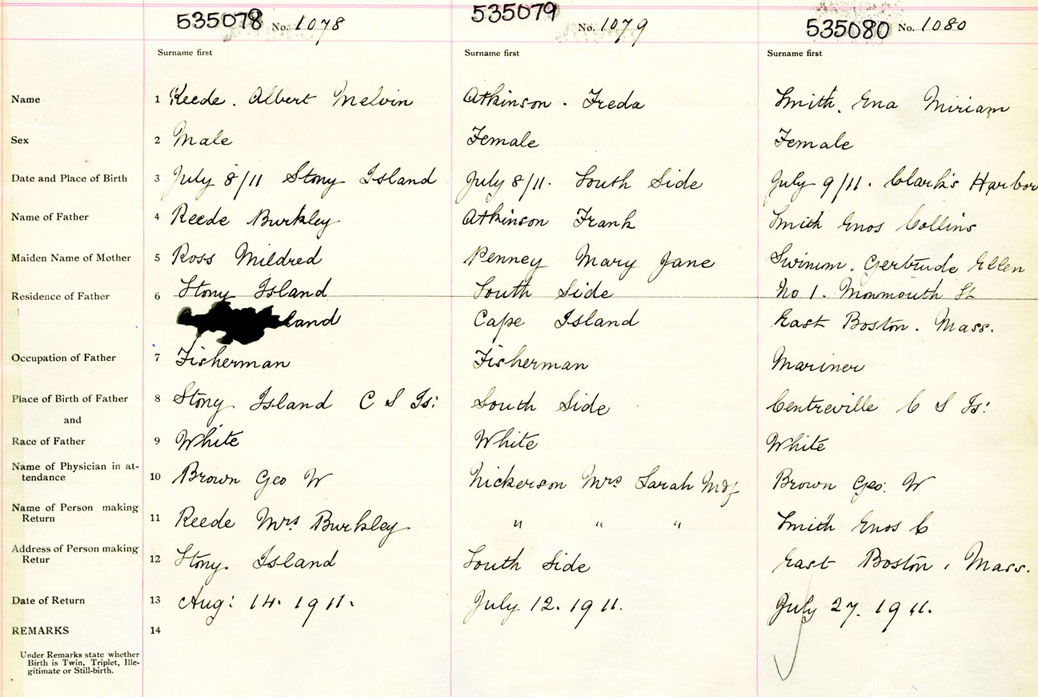 535078 No. 1078 535079 No. 1079 535080 No. 1080
Surname first Surname first Surname first
Name 1 Reede. Albert Melvin Atkinson. Freda Smith, Ena Miriam
Sex 2 Male Female Female
Date and Place of Birth 3 July 8/11 Stony Island July 8/11. South Side July 9/11. Clark's Harbor
Name of Father 4 Reede Burkley Atkinson Frank Smith Enos Collins
Maiden Name of Mother 5 Ross Mildred Penney Mary Jane Swimm. Gertrude Ellen
Residence of Father 6 Stony Island South Side No 1. Monmouth St
land Cape Island East Boston. Mass.
Occupation of Father 7 Fisherman Fisherman Mariner
Place of Birth of Father 8 Stony Island C S Is: South Side Centreville C S Is:
and
Race of Father 9 White White White
Name of Physician in at-
tendance 10 Brown Geo W Nickerson Mrs Sarah Brown Geo. W
Name of Person making
Return 11 Reede Mrs Burkley " " " Smith Enos C
Address of Person making
Retur 12 Stony Island South Side East Boston, Mass.
Date of Return 13 Aug: 14. 1911. July 12. 1911. July 27. 1911.
REMARKS 14
Under Remarks state whether
Birth is Twin, Triplet, Ille-
gitimate or Still-birth.